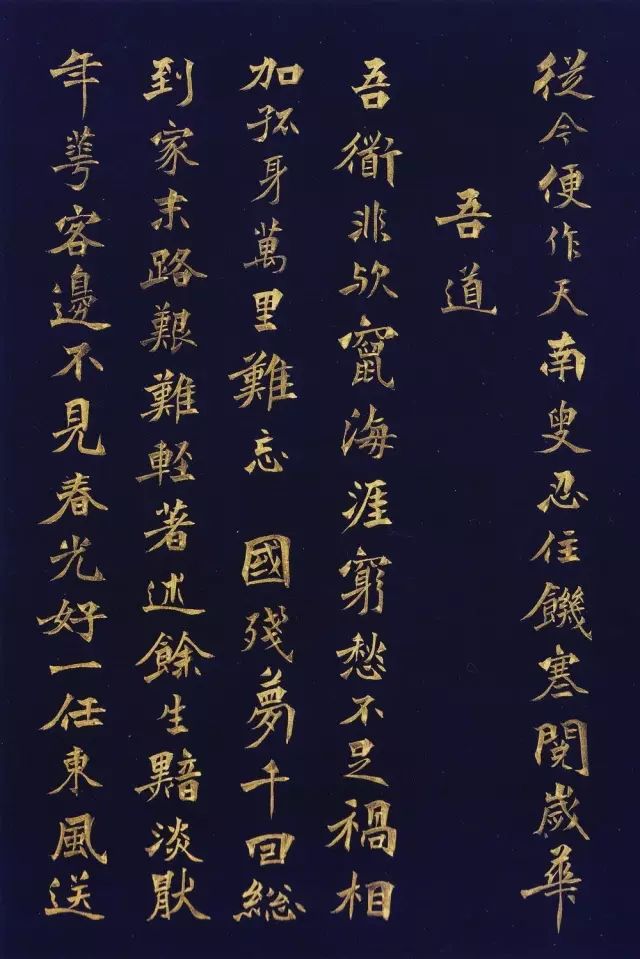 從今便作天南叟忍住饑寒閱歲華
吾道
吾衟非欤竄海涯窮愁不足禍相
加孤身萬里難忘 國殘夢千回総
到家末路艱難軽著述餘生黯淡
年蕚客邊不見春光好一任東風送